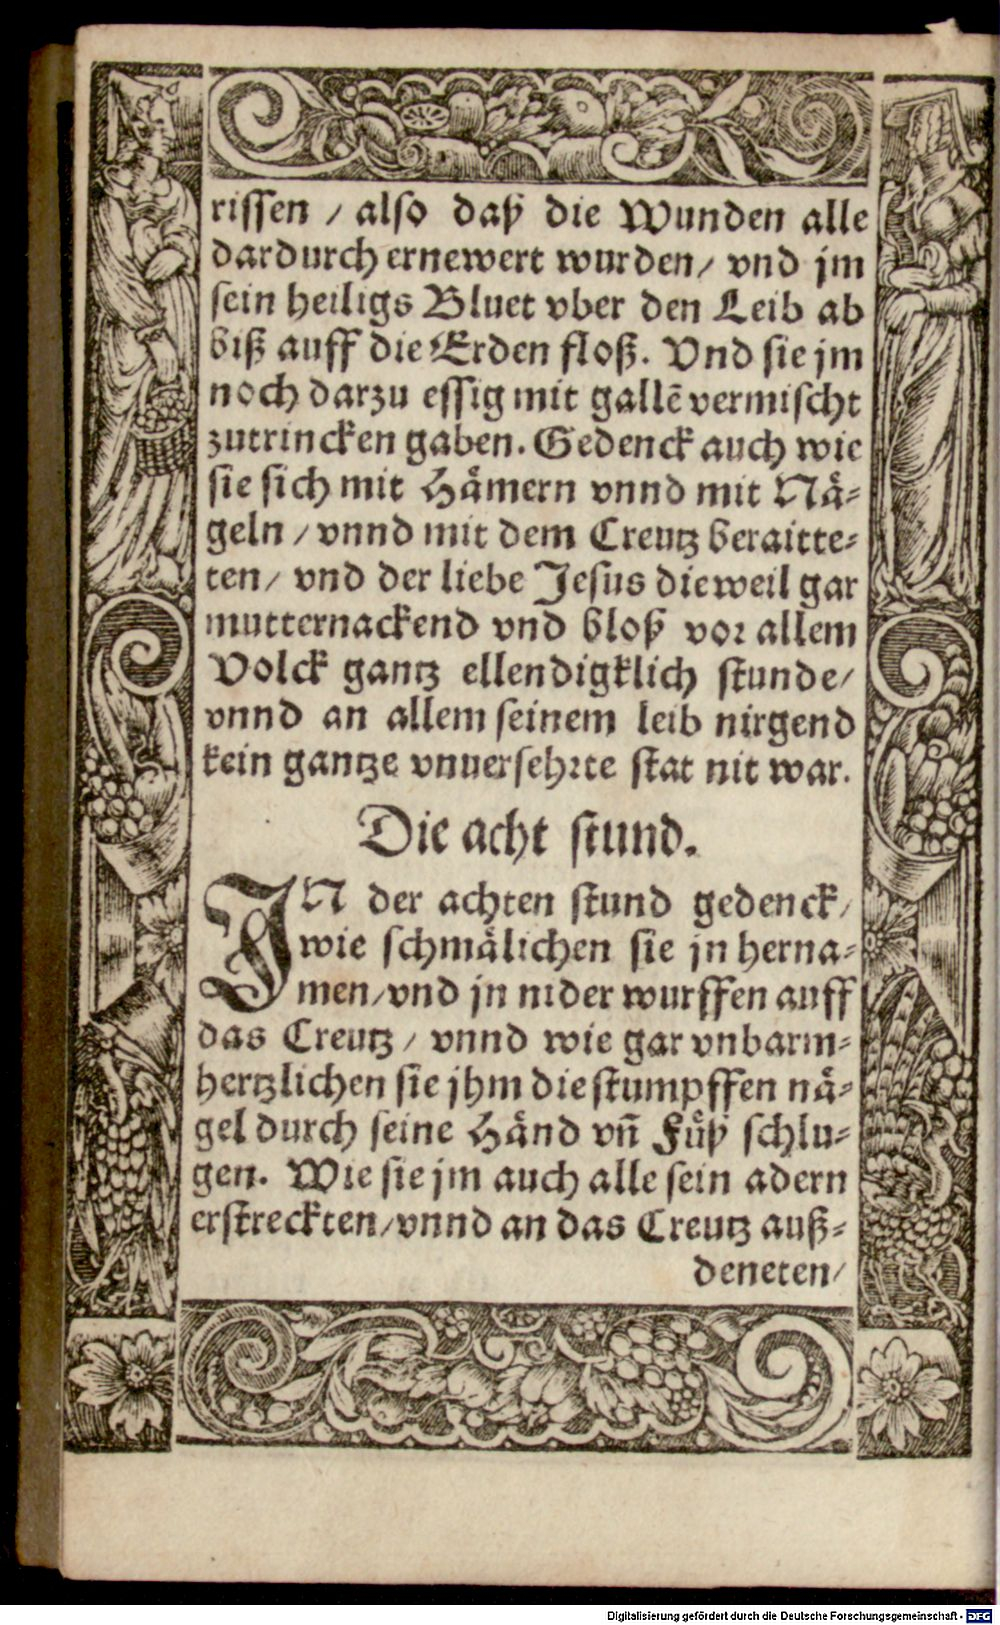 rissen / also daß die Wunden alle
dardurch ernewert wurden / vnd jm
sein heiligs Bluet vber den Leib ab
biß auff die Erden floß. Vnd sie jm
noch darzu essig mit gallẽ vermischt
zutrincken gaben. Gedenck auch wie
sie sich mit Hämern vnnd mit Nä-
geln / vnnd mit dem Creutz beraitte-
ten / vnd der liebe Jesus dieweil gar
mutternackend vnd bloß vor allem
Volck gantz ellendigklich stunde /
vnnd an allem seinem leib nirgend
kein gantze vnuersehrte stat nit war.
Die acht stund.
IN der achten stund gedenck /
wie schmälichen sie jn herna-
men / vnd jn nider wurffen auff
das Creutz / vnnd wie gar vnbarm-
hertzlichen sie jhm die stumpffen nä-
gel durch seine Händ vñ Füß schlu-
gen. Wie sie jm auch alle sein adern
erstreckten / vnnd an das Creutz auß-
deneten /
Digitalisierung gefördert durch die Deutsche Forschungsgemeinschaft - DFG